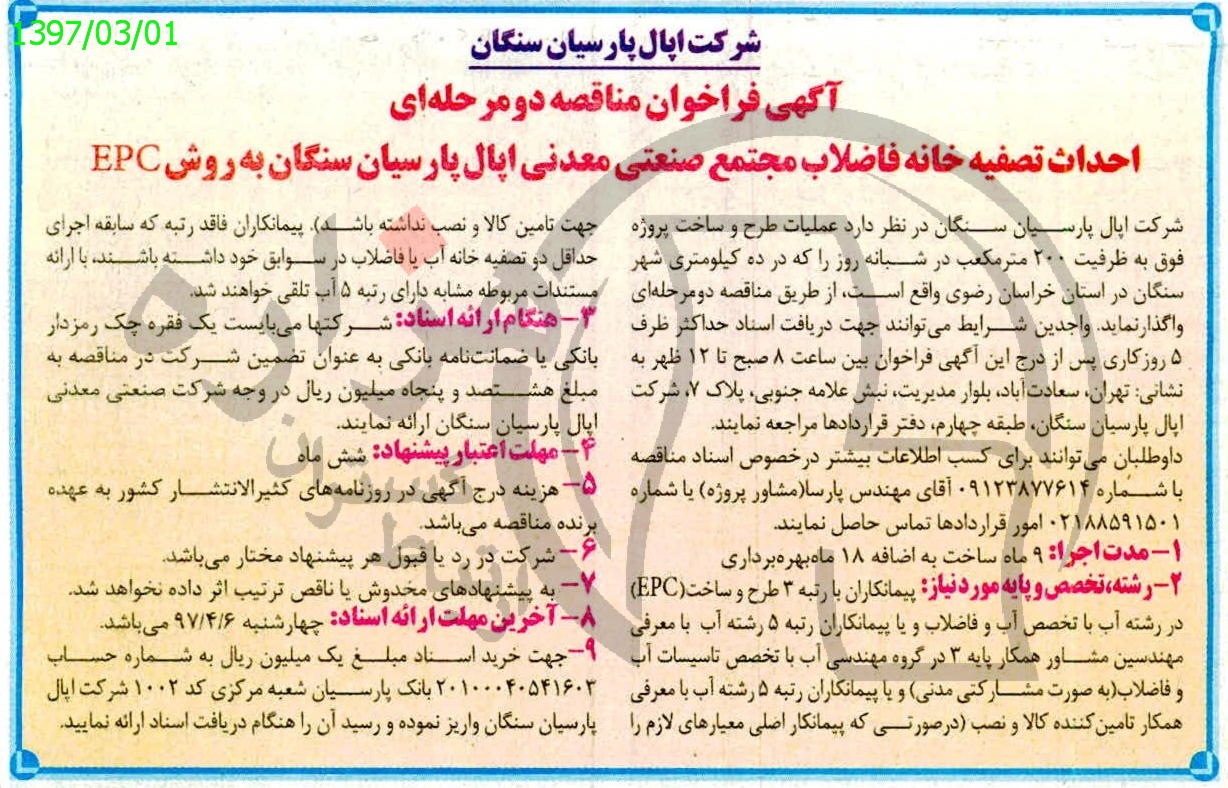 1397/03/01
شرکت اپال پارسیان سنگان
آگهی فراخوان مناقصه دو مرحله‌ای
احداث تصفیه خانه فاضلاب مجتمع صنعتی معدنی اپال پارسیان سنگان به روش EPC
شرکت اپال پارسیان سنگان در نظر دارد عملیات طرح و ساخت پروژه
فوق به ظرفیت ۲۰۰ مترمکعب در شبانه روز را که در ده کیلومتری شهر
سنگان در استان خراسان رضوی واقع است، از طریق مناقصه دومرحله‌ای
واگذارنماید. واجدین شرایط می‌توانند جهت دریافت اسناد حداکثر ظرف
۵ روز کاری پس از درج این آگهی فراخوان بین ساعت ۸ صبح تا ۱۲ ظهر به
نشانی: تهران، سعادت‌آباد، بلوار مدیریت، نبش علامه جنوبی، پلاک ۷، شرکت
اپال پارسیان سنگان، طبقه چهارم، دفتر قراردادها مراجعه نمایند.
داوطلبان می‌توانند برای کسب اطلاعات بیشتر درخصوص اسناد مناقصه
با شماره ۰۹۱۲۳۸۷۷۶۱۴ آقای مهندس پارسا(مشاور پروژه) یا شماره
۰۲۱۸۸۵۹۱۵۰۱ امور قراردادها تماس حاصل نمایند.
۱– مدت اجرا: ۹ ماه ساخت به اضافه ۱۸ ماه‌بهره‌برداری
۲– رشته،تخصص و پایه مورد نیاز: پیمانکاران با رتبه ۳ طرح و ساخت(EPC)
در رشته آب با تخصص آب و فاضلاب و یا پیمانکاران رتبه ۵ رشته آب با معرفی
مهندسین مشاور همکار پایه ۳ در گروه مهندسی آب با تخصص تاسیسات آب
و فاضلاب(به صورت مشارکتی مدنی) و یا پیمانکاران رتبه ۵ رشته آب با معرفی
همکار تامین‌کننده کالا و نصب (درصورتی که پیمانکار اصلی معیارهای لازم را
جهت تامین کالا و نصب نداشته باشد). پیمانکاران فاقد رتبه که سابقه اجرای
حداقل دو تصفیه خانه آب یا فاضلاب در سوابق خود داشته باشند، با ارائه
مستندات مربوطه مشابه دارای رتبه ۵ آب تلقی خواهند شد.
۳– هنگام ارائه اسناد: شرکتها می‌بایست یک فقره چک رمزدار
بانکی یا ضمانت‌نامه بانکی به عنوان تضمین شرکت در مناقصه به
مبلغ هشتصد و پنجاه میلیون ریال در وجه شرکت صنعتی معدنی
اپال پارسیان سنگان ارائه نمایند.
۴– مهلت اعتبار پیشنهاد: شش ماه
۵– هزینه درج آگهی در روزنامه‌های کثیرالانتشار کشور به عهده
برنده مناقصه می‌باشد.
۶– شرکت در رد یا قبول هر پیشنهاد مختار می‌باشد.
۷– به پیشنهادهای مخدوش یا ناقص ترتیب اثر داده نخواهد شد.
۸– آخرین مهلت ارائه اسناد: چهارشنبه ۹۷/۴/۶ می‌باشد.
۹–جهت خرید اسناد مبلغ یک میلیون ریال به شماره حساب
۲۰۱۰۰۰۴۰۵۴۱۶۰۳ بانک پارسیان شعبه مرکزی کد ۱۰۰۲ شرکت اپال
پارسیان سنگان واریز نموده و رسید آن را هنگام دریافت اسناد ارائه نمایید.